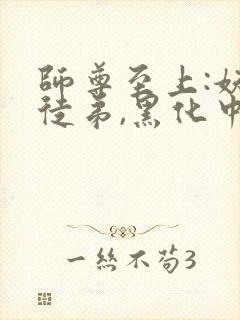 師尊至上:妖
徒弟,黑化中
一絲不苟3